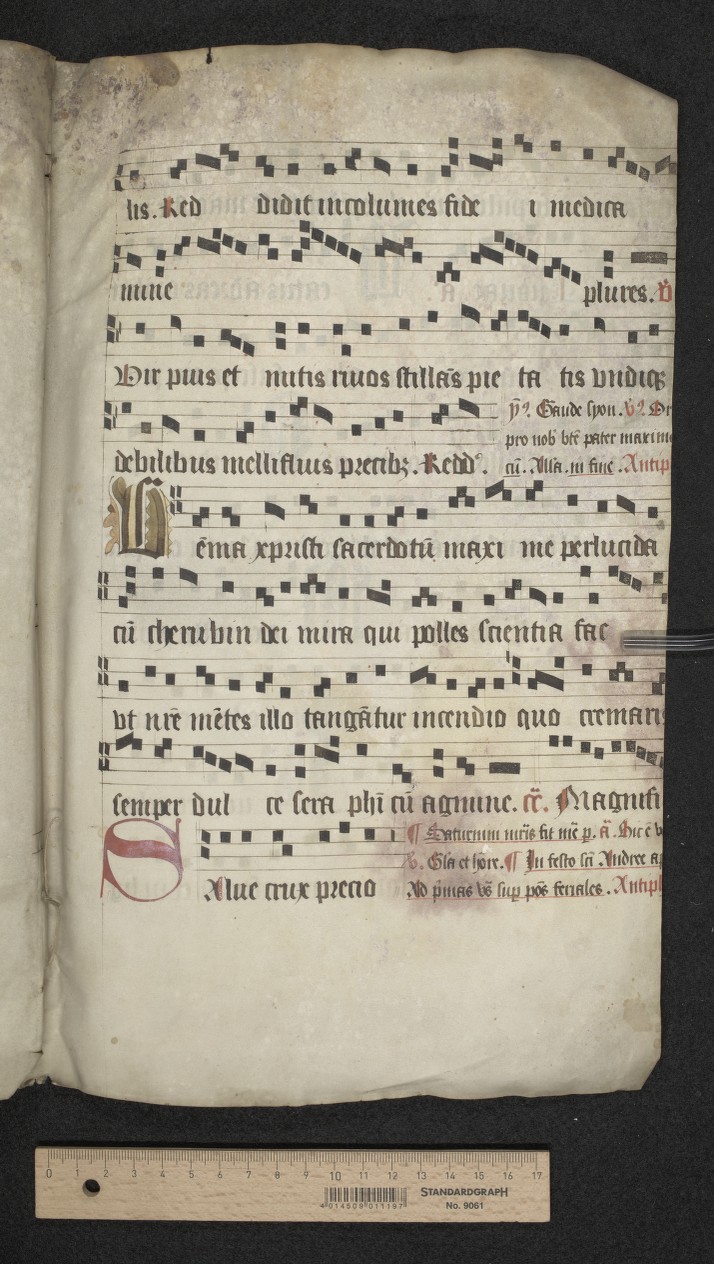 lis. Red didit incolumes fide i medica
mine plures. V
Vir pius et mitis riuos stillās pie ta tis vndiqꝫ
debilibus mellifluis precibꝫ. Redd.
Gaude spon.
pro nob bte pater maxime
cū. Alla. in fine. Antip
ēma xpristi sacerdotū maxi me perlucida
cū cherubin dei mira qui polles scientia fac
vt nr̄e mētes illo tangātur incendio quo cremari
semper dul ce sera phī cū agmine. Magnifi
Saturnini mr̄is fit mē p. a. Hic ē v
Gla et hore. ¶ In festo sci Andree ap
SAlue crux precio
Ad pimas vs sup pōs feriales. Antiph
0 1 2 3 4 5 6 7 8 9 10 11 12 13 14 15 16 17
STANDARDGRAPH
No. 9061
4 014509 011197